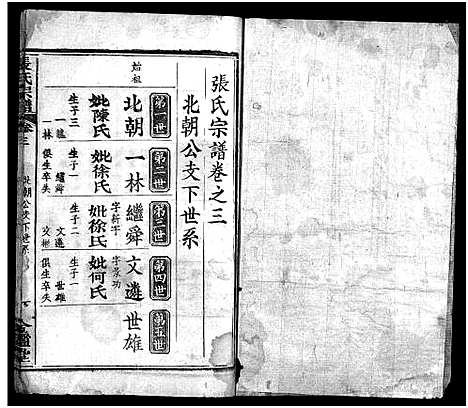 張氏宗譜卷之三
北朝公支下世系
第一世
第二世
第三世
第四世
第五世
始祖
北朝
妣陳氏
生子二
一龍
一林
一林
妣徐氏
生子一
繼舜
俱生卒失
繼舜
字新字
妣徐氏
生子二
文遴
文彬
文遴
字景功
妣何氏
生子一
世雄
俱生卒失
世雄
張氏宗譜
卷三
北朝公支下世系